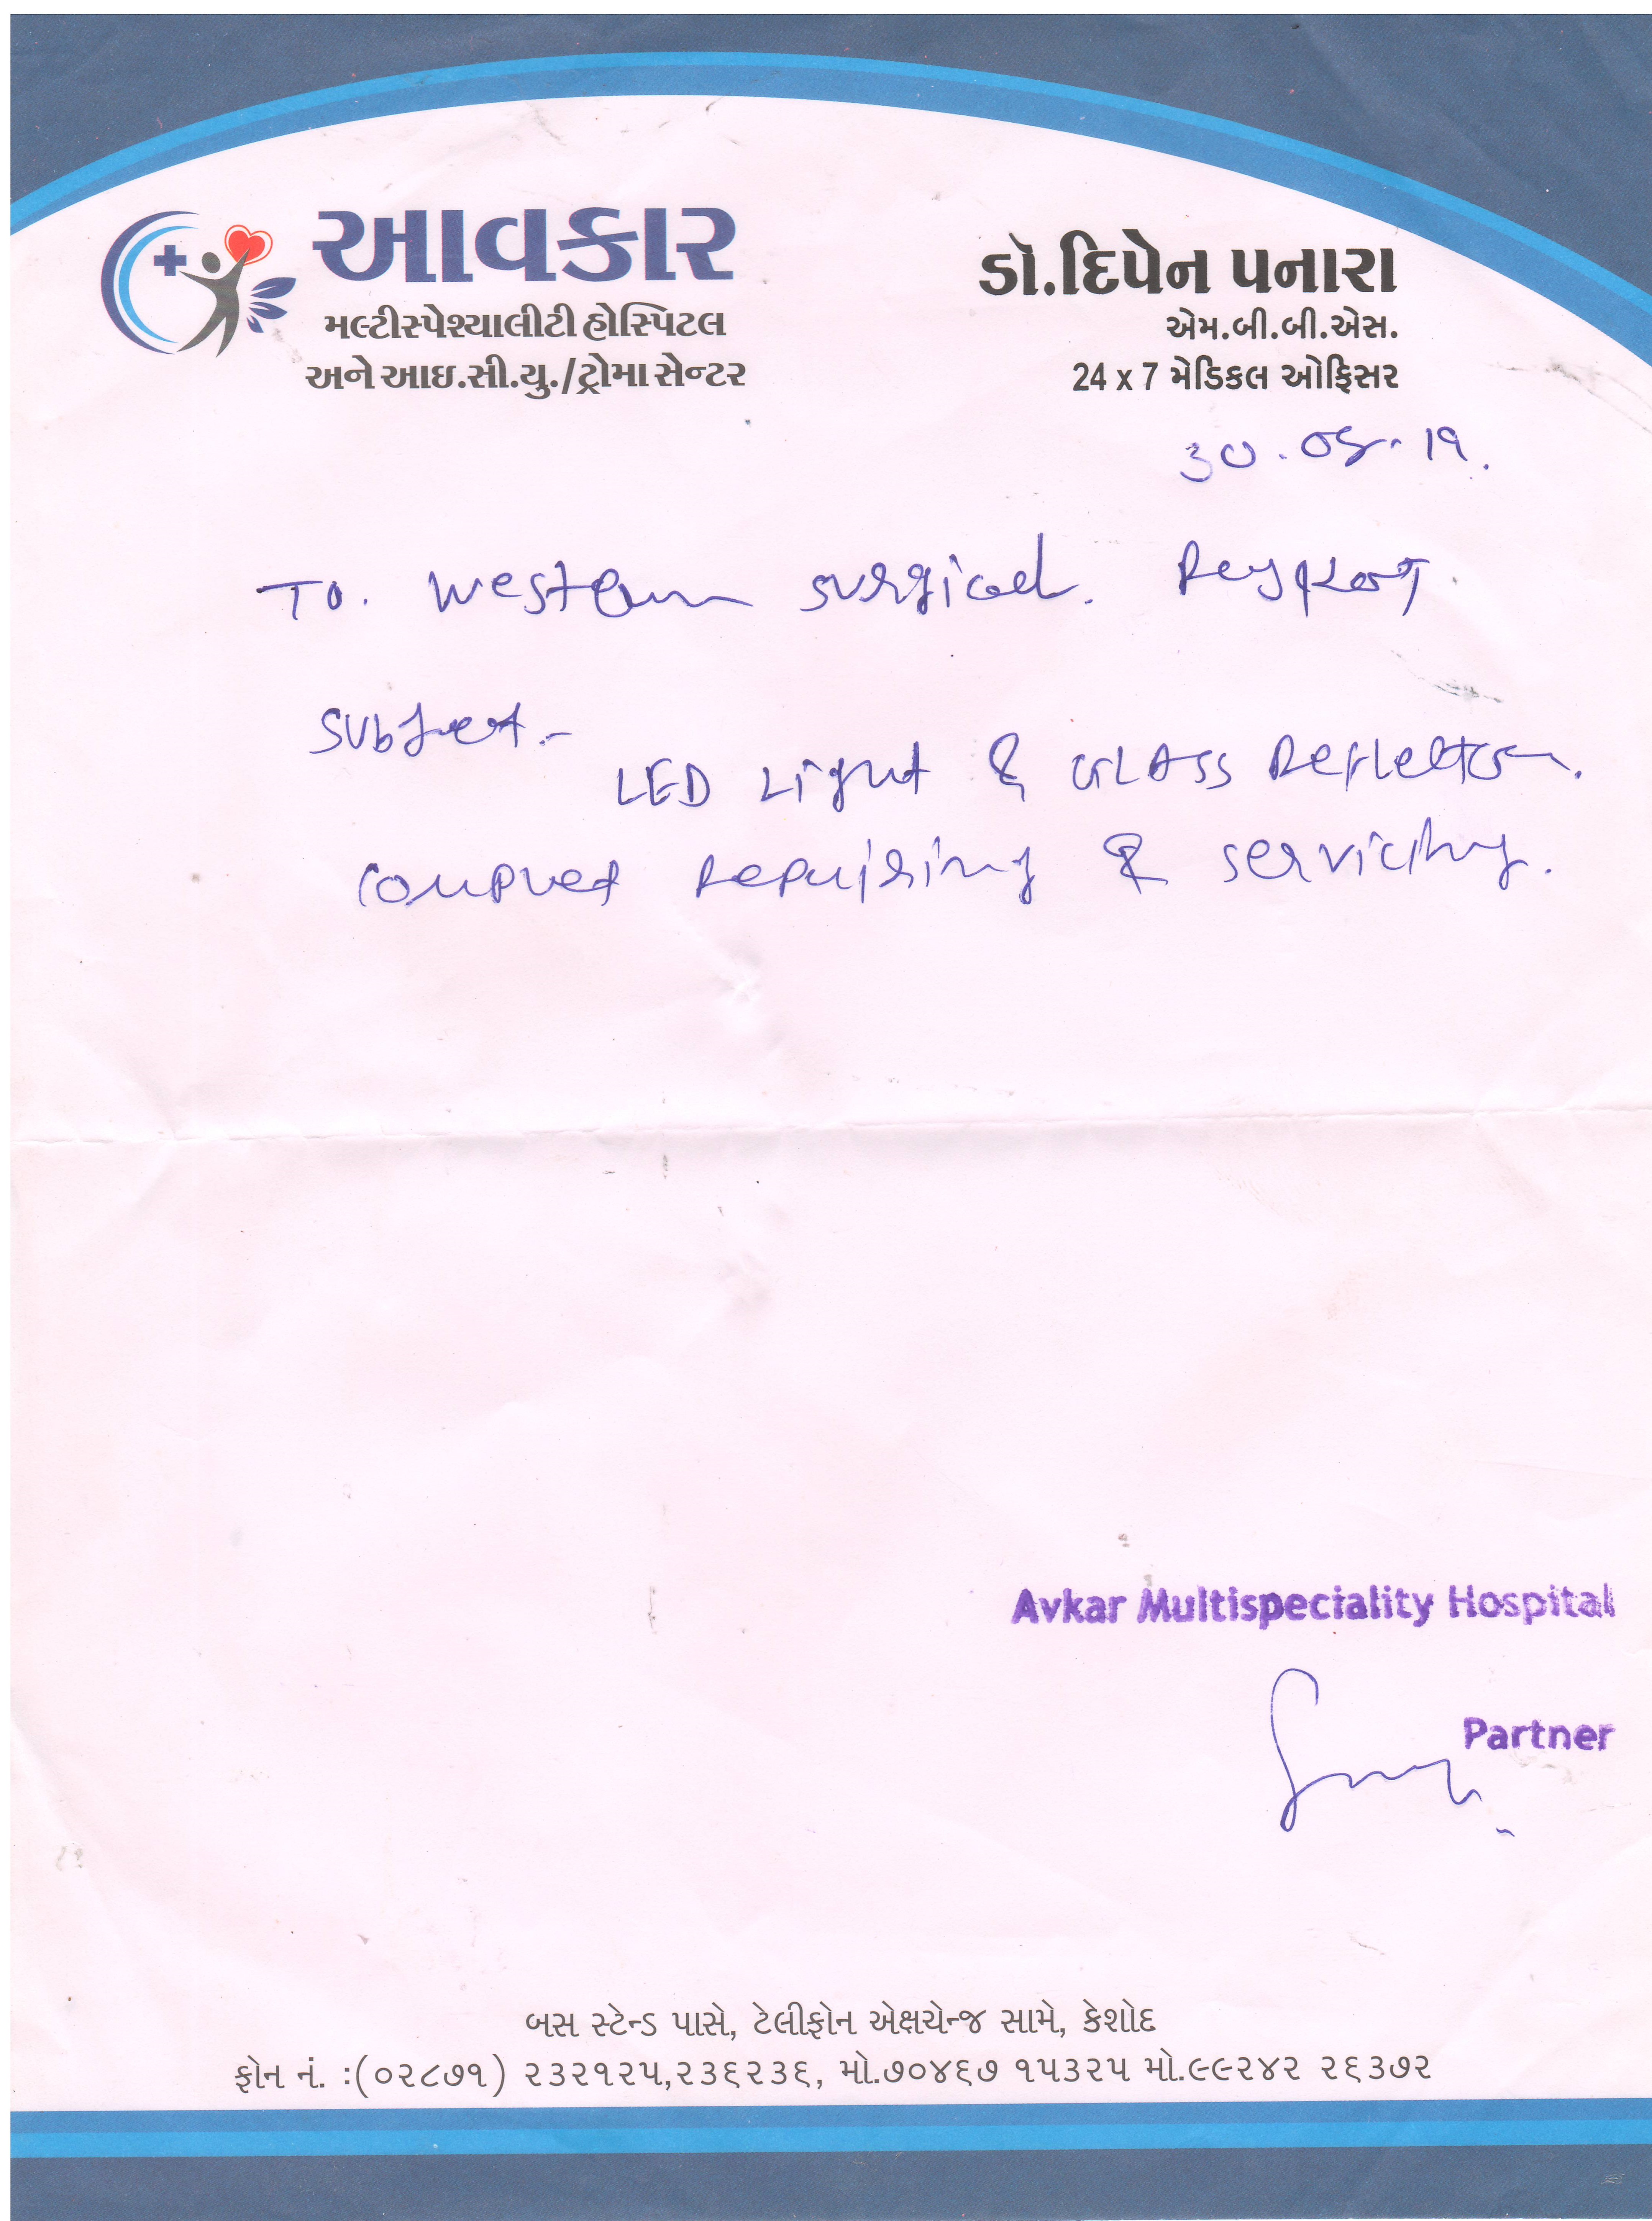 આવકાર
મલ્ટીસ્પેશ્યાલીટી હોસ્પિટલ
અને આઇ.સી.યુ./ટ્રોમા સેન્ટર
ડૉ.દિપેન પનારા
એમ.બી.બી.એસ.
24 x 7 મેડિકલ ઓફિસર
To. Western surgical.
Subject.-
LED Light & GLASS Reflector.
Repairing & servicing.
Avkar Multispeciality Hospital
Partner
બસ સ્ટેન્ડ પાસે, ટેલીફોન એક્ષચેન્જ સામે, કેશોદ
ફોન નં. :(૦૨૮૭૧) ૨૩૨૧૨૫,૨૩૬૨૩૬, મો.૭૦૪૬૭ ૧૫૩૨૫ મો.૯૯૨૪૨ ૨૬૩૭૨